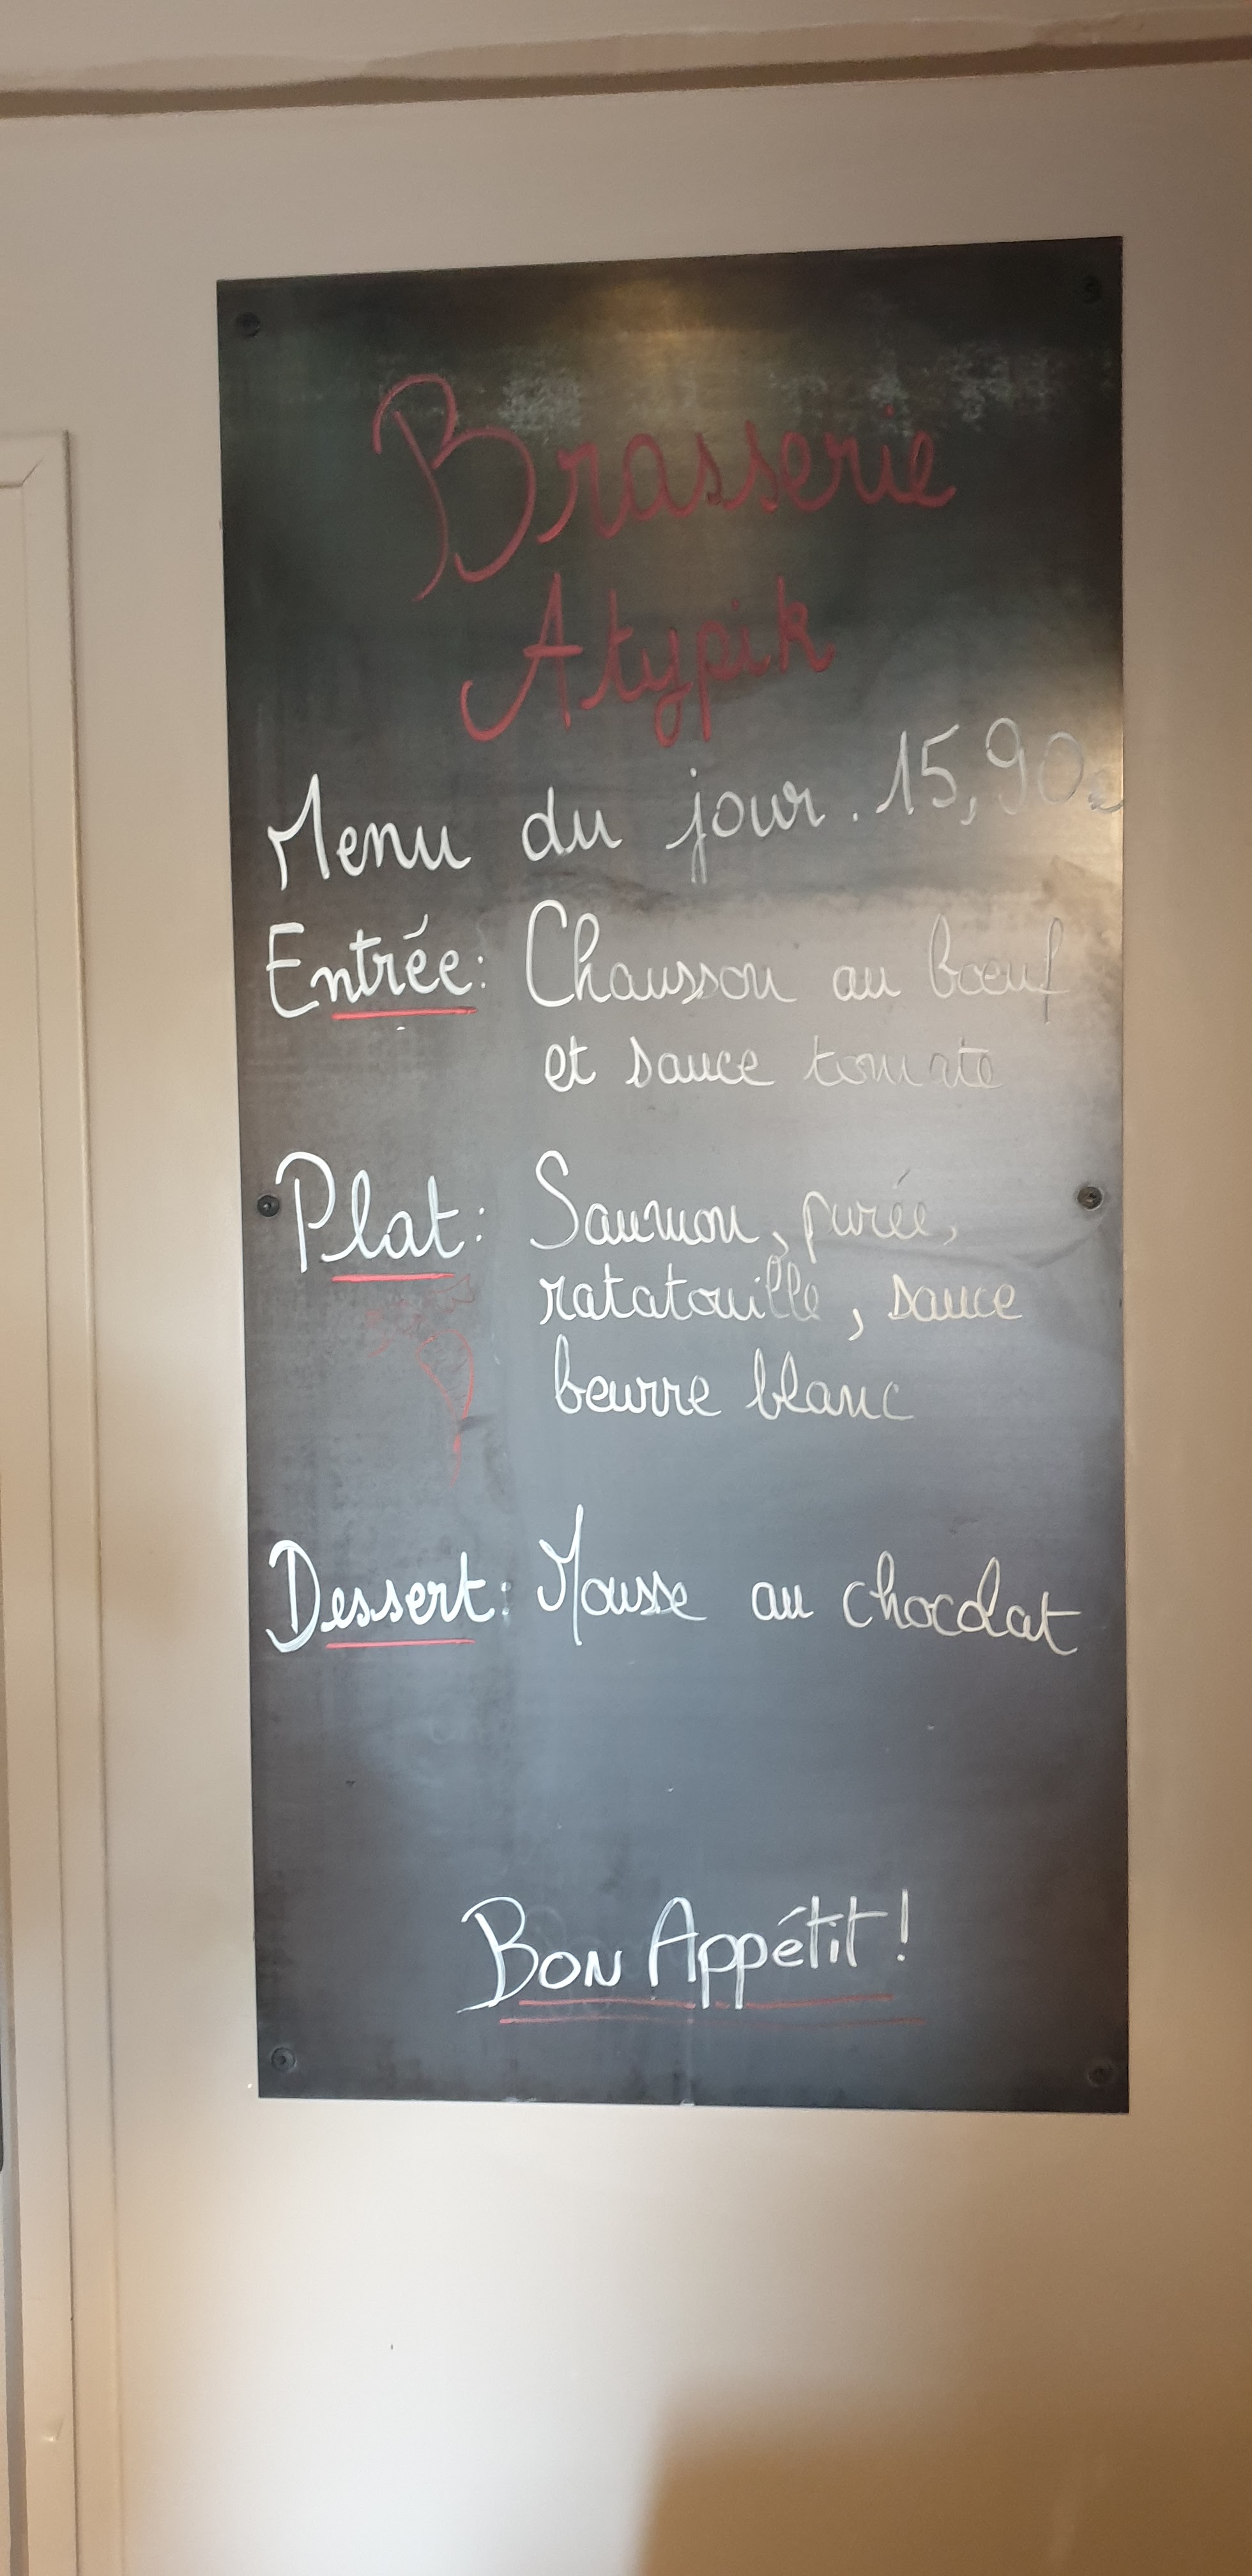 Brasserie
Atypik
Menu du jour. 15,90€
Entrée: Chausson au bœuf
et sauce tomate
Plat: Saumon, purée,
ratatouille, sauce
beurre blanc
Dessert: Mousse au chocolat
Bon Appétit!